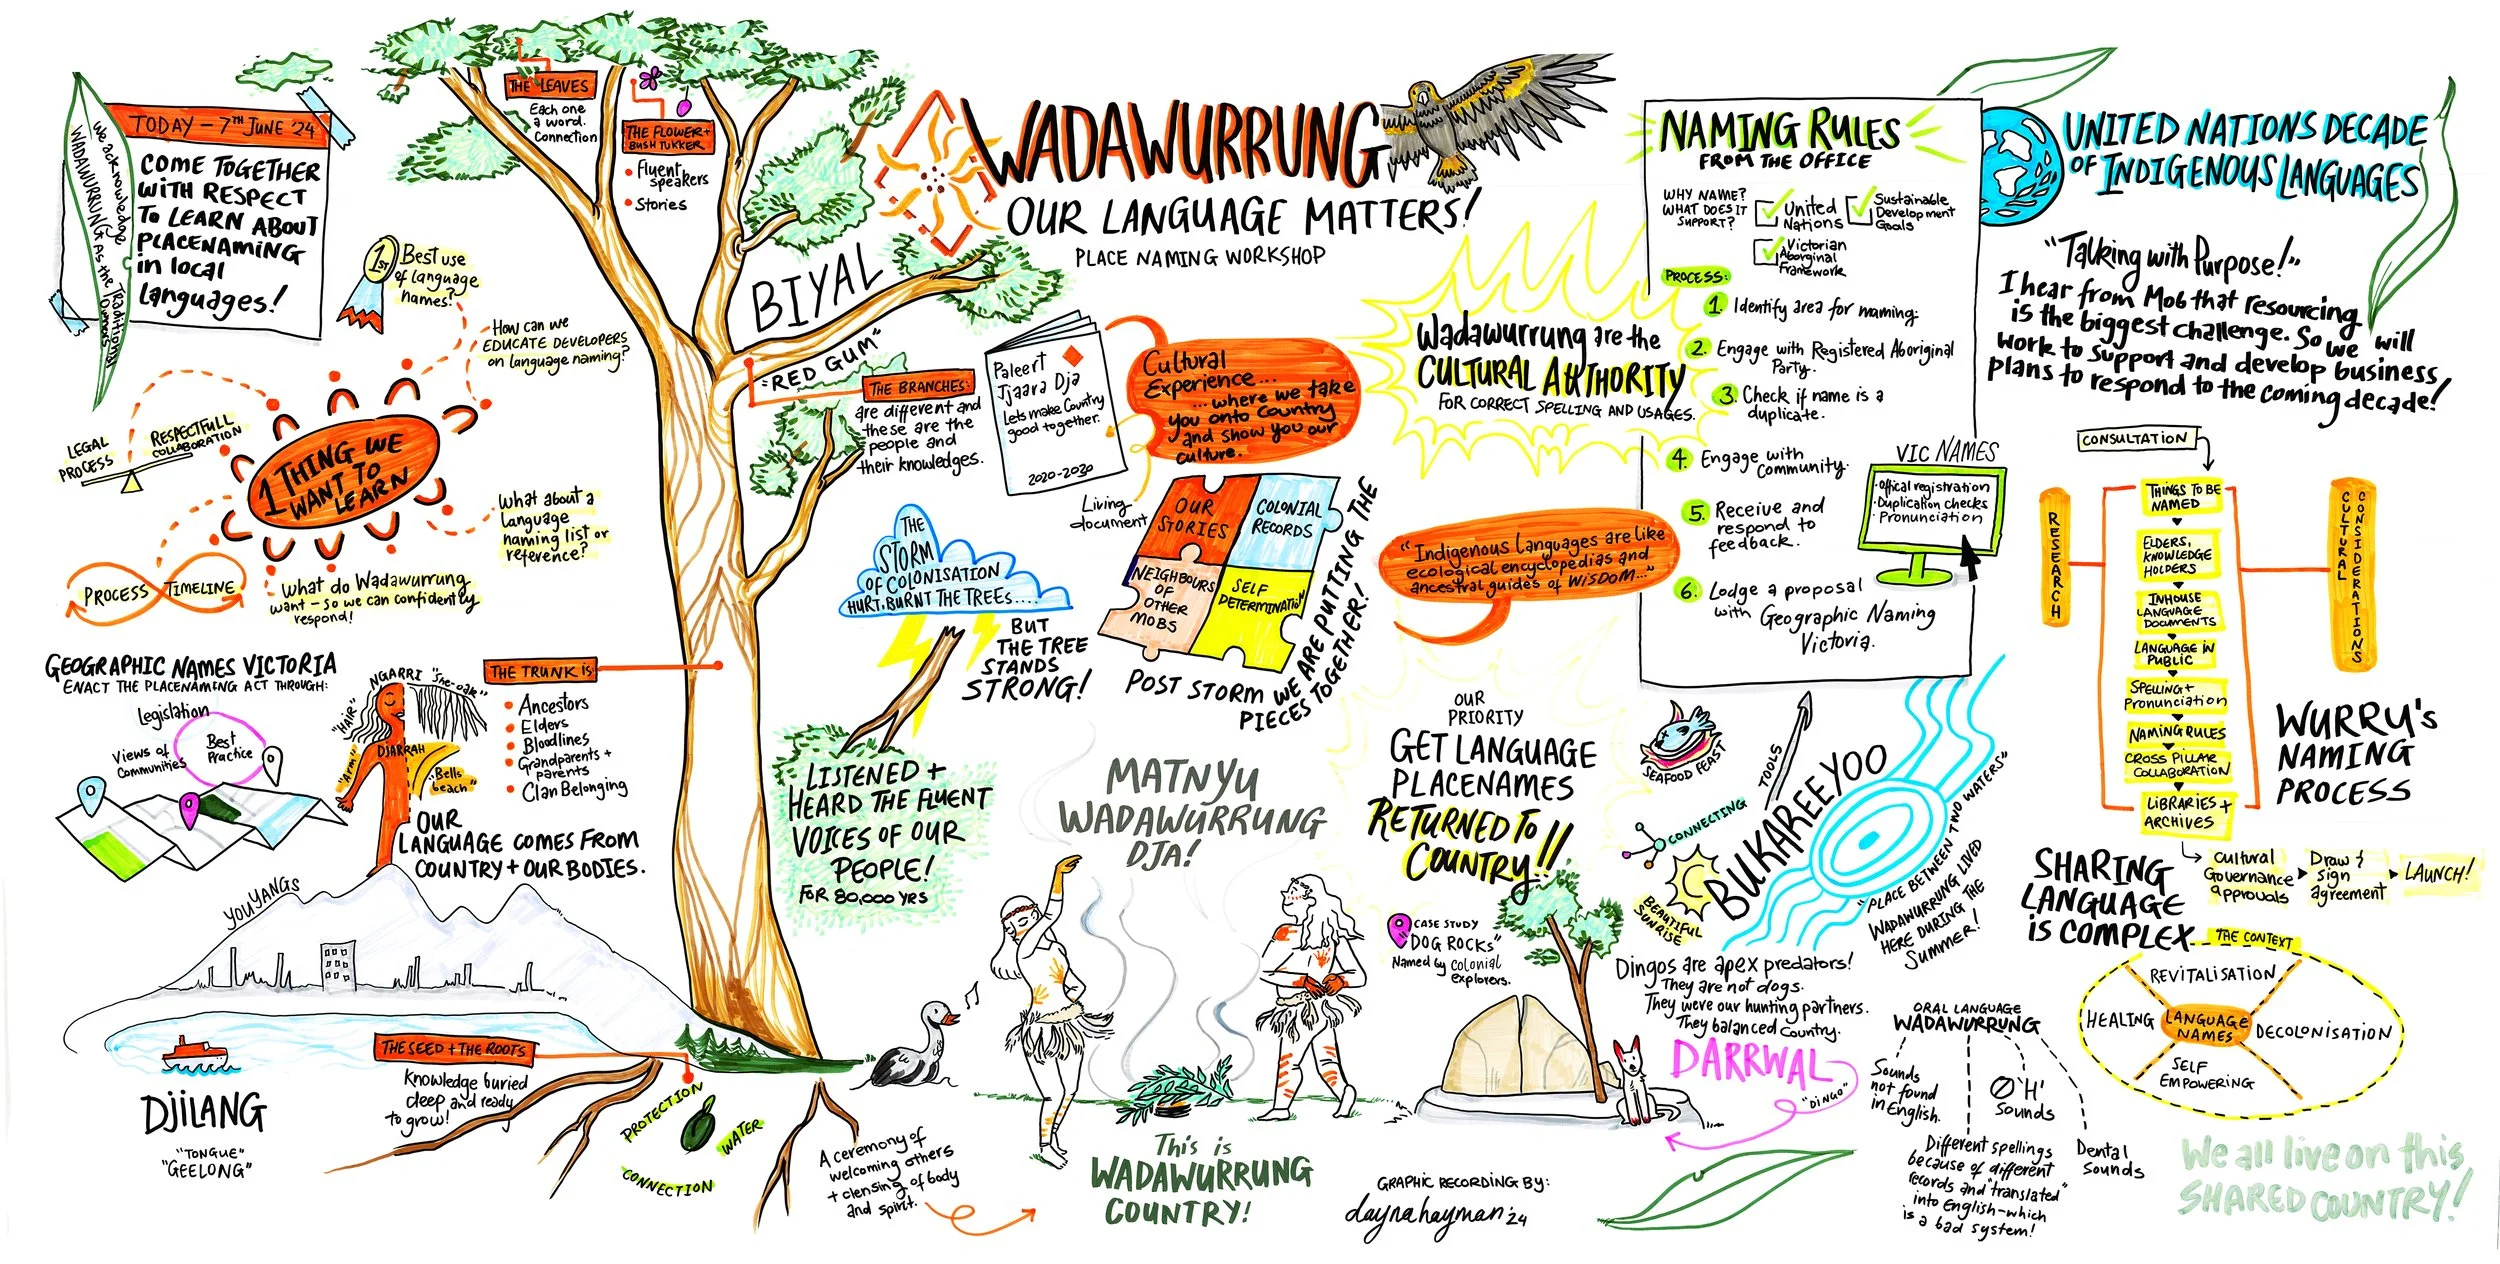 TODAY - 7TH JUNE '24
COME TOGETHER
WITH RESPECT
TO LEARN ABOUT
PLACENAMING
in local
languages!
We acknowledge
WADAWURRUNG AS the Traditional
Owners
1ST
Best use
of language
names?
How can we
EDUCATE DEVELOPERS
on language naming?
LEGAL
PROCESS
RESPECTFULL
COLLABORATION
1 THING WE
WANT TO
LEARN
What about a
language
naming list or
reference?
PROCESS
TIMELINE
What do Wadawurrung
want - so we can confidently
respond!
GEOGRAPHIC NAMES VICTORIA
ENACT THE PLACENAMING ACT THROUGH:
Legislation
Views of
Communities
Best
Practice
NGARRI "She-oak"
"HAIR"
"Arm"
DJARRAH
"Bells
beach"
OUR
LANGUAGE COMES FROM
COUNTRY + OUR BODIES.
YOUYANGS
DJILANG
"TONGUE"
"GEELONG"
THE LEAVES
Each one
a word.
Connection
THE FLOWER +
BUSH TUKKER
• Fluent
speakers
• Stories
BIYAL
"RED GUM"
THE BRANCHES:
are different and
these are the
people and
their knowledges.
THE TRUNK IS:
• Ancestors
• Elders
• Bloodlines
• Grandparents +
parents
• Clan Belonging
THE SEED + THE ROOTS
Knowledge buried
deep and ready
to grow!
PROTECTION
WATER
CONNECTION
WADAWURRUNG
OUR LANGUAGE MATTERS!
PLACE NAMING WORKSHOP
Paleert
Tjaara Dja
Lets make Country
good together.
2020-2030
Living
document
Cultural
Experience...
...where we take
you onto Country
and show you our
culture.
THE
STORM
OF COLONISATION
HURT, BURNT THE TREES....
BUT
THE TREE
STANDS
STRONG!
OUR
STORIES
COLONIAL
RECORDS
NEIGHBOURS
OF
OTHER
MOBS
SELF
DETERMINATION
POST STORM WE ARE PUTTING THE
PIECES TOGETHER!
LISTENED +
HEARD THE FLUENT
VOICES OF OUR
PEOPLE!
FOR 80,000 YRS
MATNYU
WADAWURRUNG
DJA!
A ceremony of
welcoming others
+ clensing of body
and spirit.
This is
WADAWURRUNG
COUNTRY!
Wadawurrung are the
CULTURAL AUTHORITY
FOR CORRECT SPELLING AND USAGES.
"Indigenous Languages are like
ecological encyclopedias and
ancestral guides of WISDOM..."
OUR
PRIORITY
GET LANGUAGE
PLACENAMES
RETURNED TO
COUNTRY!!
CASE STUDY
"DOG ROCKS"
Named by colonial
explorers.
GRAPHIC RECORDING BY:
daynahayman '24
NAMING RULES
FROM THE OFFICE
WHY NAME?
WHAT DOES IT
SUPPORT?
United
Nations
Sustainable
Development
Goals
Victorian
Aboriginal
Framework
PROCESS:
1. Identify area for naming:
2. Engage with Registered Aboriginal
Party.
3. Check if name is a
duplicate.
4. Engage with
community.
5. Receive and
respond to
feedback.
6. Lodge a proposal
with Geographic Naming
Victoria.
VIC NAMES
• Offical registration
• Duplication checks
• Pronunciation
SEAFOOD FEAST
TOOLS
CONNECTING
BEAUTIFUL
SUNRISE
BUKAREEYOO
"PLACE BETWEEN TWO WATERS"
WADAWURRUNG LIVED
HERE DURING THE
SUMMER!
Dingos are apex predators!
They are not dogs.
They were our hunting partners.
They balanced country.
DARRWAL
"DINGO"
UNITED NATIONS DECADE
OF INDIGENOUS LANGUAGES
"Talking with Purpose!"
I hear from Mob that resourcing
is the biggest challenge. So we will
work to support and develop business
plans to respond to the coming decade!
CONSULTATION
RESEARCH
CULTURAL
CONSIDERATIONS
THINGS TO BE
NAMED
ELDERS,
KNOWLEDGE
HOLDERS
INHOUSE
LANGUAGE
DOCUMENTS
LANGUAGE IN
PUBLIC
SPELLING +
Pronunciation
NAMING RULES
CROSS PILLAR
COLLABORATION
LIBRARIES +
ARCHIVES
WURRU'S
NAMING
PROCESS
Cultural
Governance
approvals
Draw &
sign
agreement
LAUNCH!
SHARING
LANGUAGE
is COMPLEX
THE CONTEXT
REVITALISATION
HEALING
LANGUAGE
NAMES
DECOLONISATION
SELF
EMPOWERING
ORAL LANGUAGE
WADAWURRUNG
Sounds
not found
in English.
Different spellings
because of different
records and "translated"
into English - which
is a bad system!
'H'
Sounds
Dental
Sounds
We all live on this
SHARED COUNTRY!